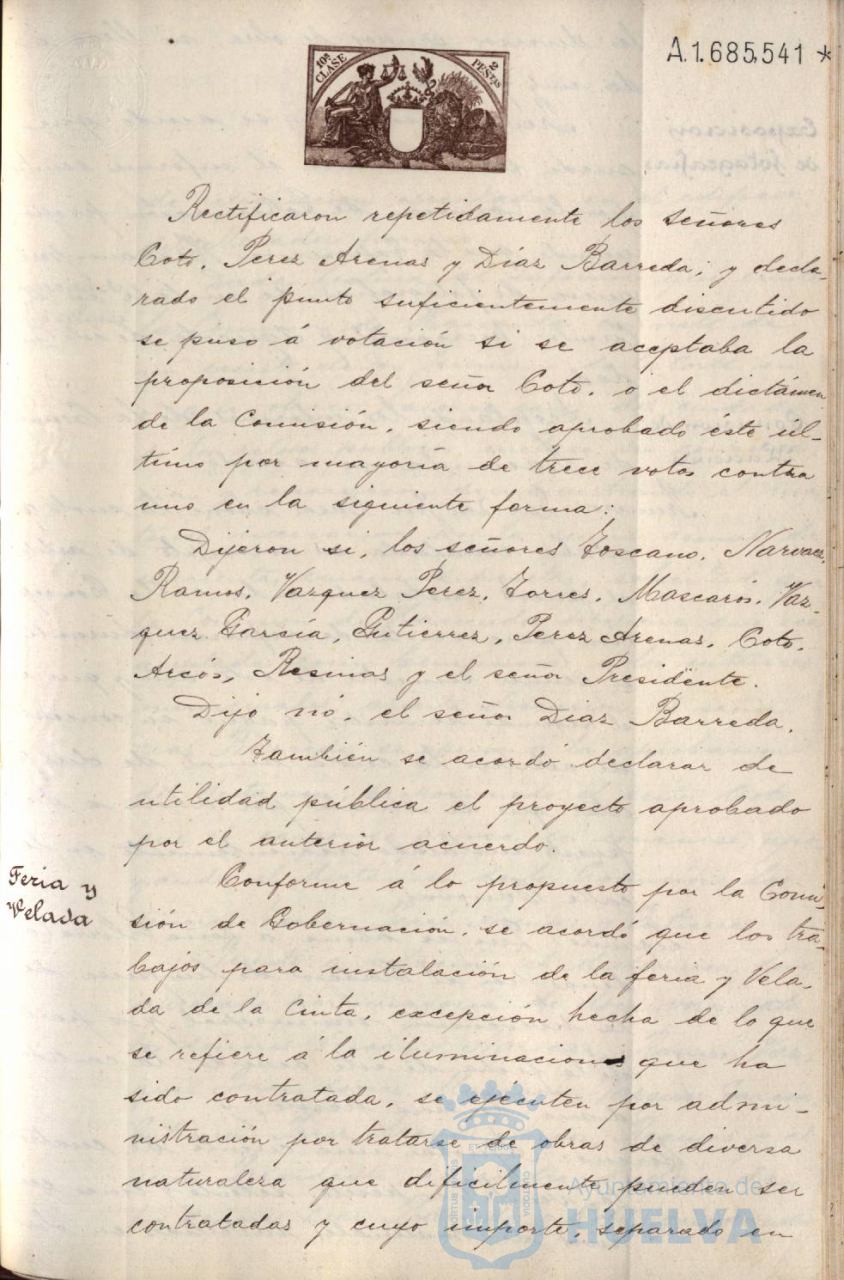 10ª CLASE
2 PESTAS
A.1.685,541 *
Rectificaron repetidamente los señores
Coto, Perez Arenas y Díaz Barreda; y decla-
rado el punto suficientemente discutido
se puso á votación si se aceptaba la
proposición del señor Coto, o el dictámen
de la Comisión, siendo aprobado éste úl-
timo por mayoría de trece votos contra
uno en la siguiente forma:
Dijeron si, los señores Toscano, Narvaez,
Ramos, Vazquez Perez, Torres, Mascarós, Vaz-
quez García, Gutierrez, Perez Arenas, Coto,
Resinas y el señor Presidente.
Dijo nó, el señor Díaz Barreda.
También se acordó declarar de
utilidad pública el proyecto aprobado
por el anterior acuerdo.
Feria y
Velada
Conforme á lo propuesto por la Comi-
sión de Gobernación, se acordó que los tra-
bajos para instalación de la feria y Vela-
da de la Cinta, excepción hecha de lo que
se refiere á la iluminacion que ha
sido contratada, se ejecuten por admi-
nistración por tratarse de obras de diversa
naturaleza que dificilmente pueden ser
contratadas y cuyo importe, separado en
Ayuntamiento de
HUELVA